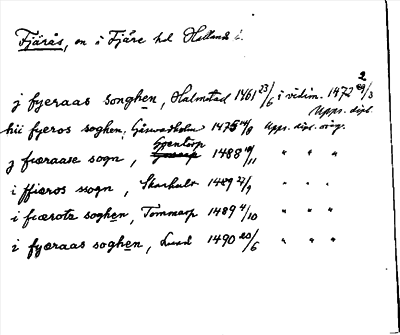 Fjärås, sn i Fjäre hd Hallands l.
j fyæraas songhen, Halmstad 1461 23/6 i vidim. 1472 2/3
Upps. dipl.
hii fyeros soghen, Gåsevadholm 1475 14/8 Upps. dipl. orig.
j fiæraase sogn, 1488 19/11 " " "
i ffiæros ssogn, Skarhult 1489 27/9 " " "
i fiærota soghen, Tommarp 1489 4/10 " " "
i fyæraas soghen, Lund 1490 20/6 " " "